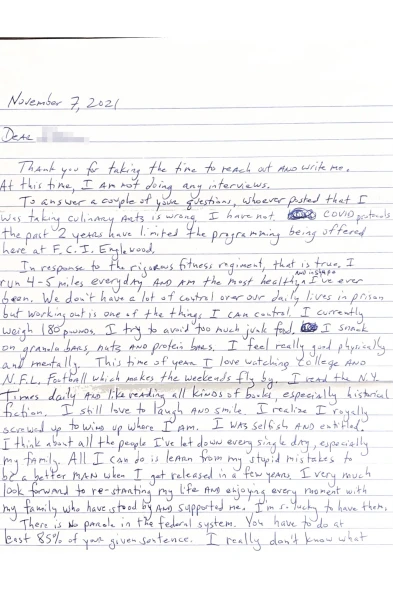 November 7, 2021
Dear
Thank you for taking the time to reach out and write me.
At this time, I am not doing any interviews.
To answer a couple of your questions, whoever posted that I
was taking culinary arts is wrong. I have not. COVID protocols
the past 2 years have limited the programming being offered
here at F.C.I. Englewood.
In response to the rigorous fitness regiment, that is true. I
run 4-5 miles everyday and am the most healthy and in shape I've ever
been. We don't have a lot of control over our daily lives in prison
but working out is one of the things I can control. I currently
weigh 180 pounds. I try to avoid too much junk food. I snack
on granola bars, nuts and protein bars. I feel really good physically
and mentally. This time of year I love watching College and
N.F.L. Football which makes the weekends fly by. I read the N.Y.
Times daily and like reading all kinds of books, especially historical
fiction. I still love to laugh and smile. I realize I royally
screwed up to wind up where I am. I was selfish and entitled.
I think about all the people I've let down every single day, especially
my family. All I can do is learn from my stupid mistakes to
be a better man when I get released in a few years. I very much
look forward to re-starting my life and enjoying every moment with
my family who have stood by and supported me. I'm so lucky to have them.
There is no parole in the federal system. You have to do at
least 85% of your given sentence. I really don't know what